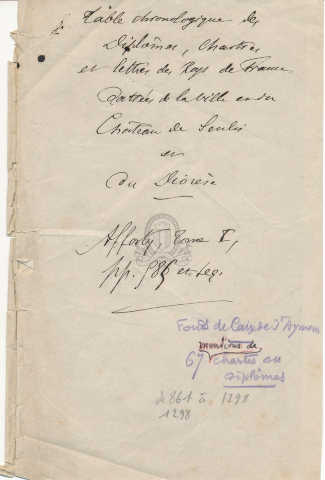 Table chronologique des
Diplômes, Chartres
et lettres des Roys de France
Dattées de la Ville ou du
Château de Senlis
ou
du Diocèse
Afforty, Tome I,
pp. 585 et seq.
Fonds de Caix de St Aymour
mentions de
67 chartes ou
diplômes
de 861 à 1298
1298